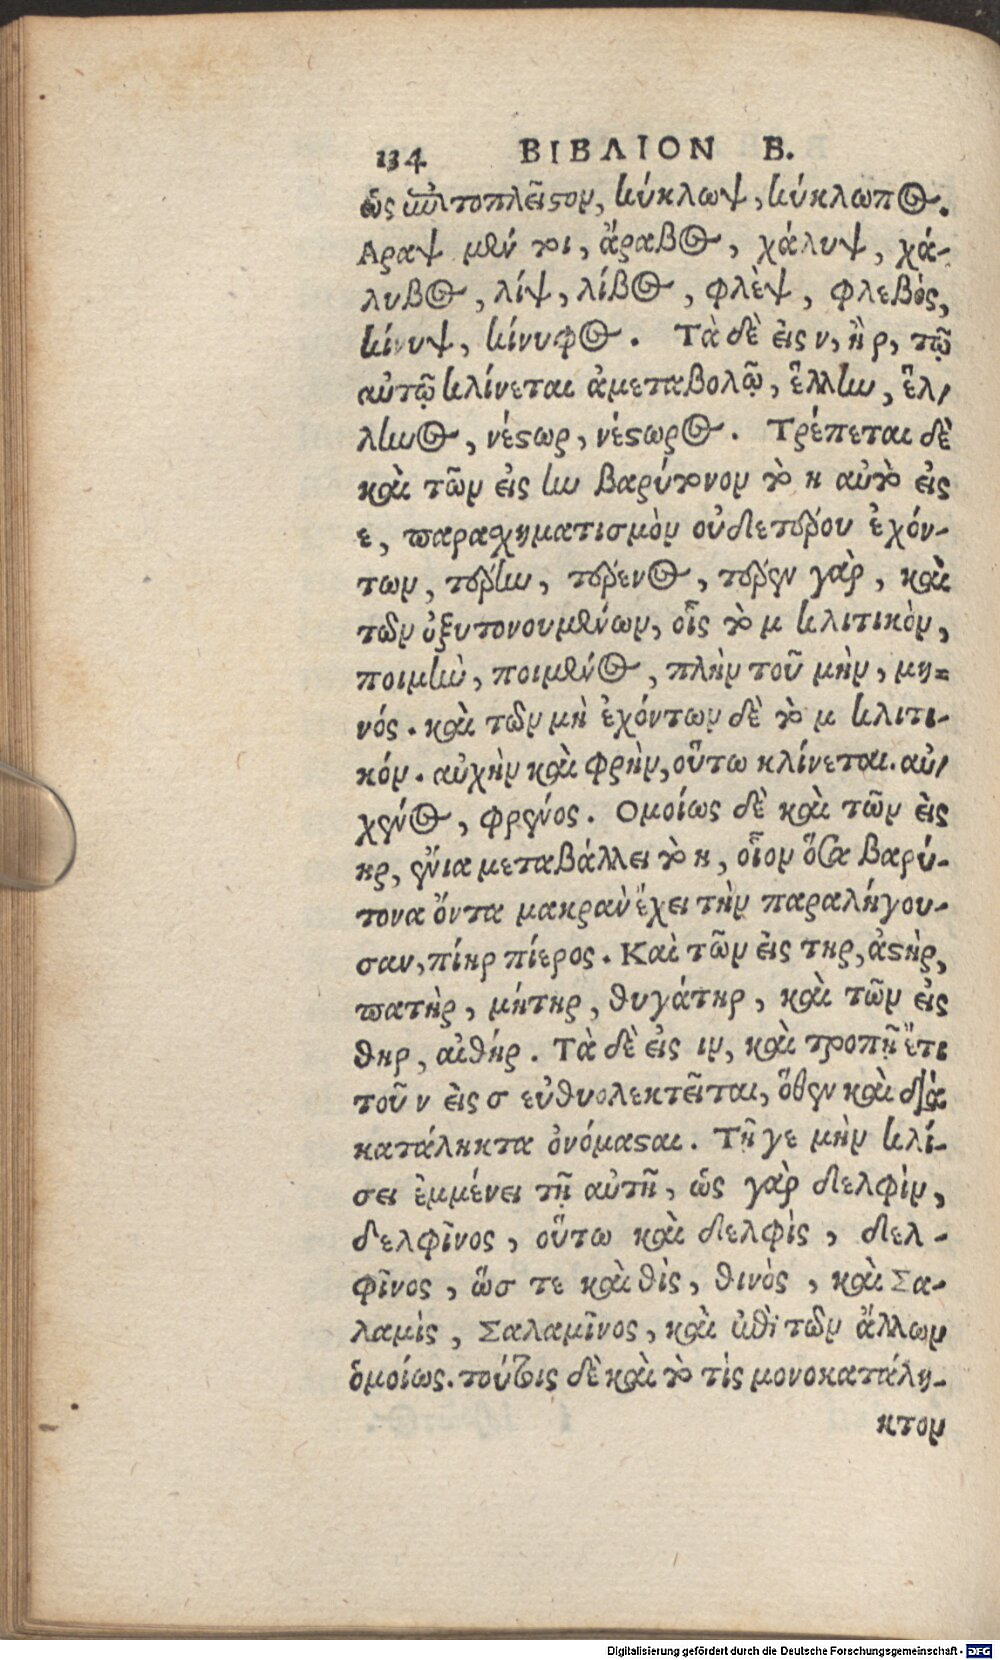 134 ΒΙΒΛΙΟΝ Β.
ὡς ἐπιτοπλεῖστον, κύκλωψ, κύκλωπος.
Αραψ μέν τοι, ἄραβος, χάλυψ, χά-
λυβος, λίψ, λίβος, φλὲψ, φλεβὸς,
κίνυψ, κίνυφος. Τὰ δὲ εἰς ν, ἢ ρ, τῷ
αὐτῷ κλίνεται ἀμεταβολῷ, ἕλλην, ἕλ-
ληνος, νέστωρ, νέστωρος. Τρέπεται δὲ
καὶ τῶν εἰς ην βαρύτονον τὸ η αὐτὸ εἰς
ε, παραχηματισμὸν οὐδετέρου ἐχόν-
των, τέρην, τέρενος, τέρεν γὰρ, καὶ
τῶν ὀξυτονουμένων, οἷς τὸ μ κλιτικὸν,
ποιμὴν, ποιμένος, πλὴν τοῦ μὴν, μη-
νός. καὶ τῶν μὴ ἐχόντων δὲ τὸ μ κλιτι-
κόν. αὐχὴν καὶ φρὴν, οὕτω κλίνεται. αὐ-
χένος, φρενός. Ομοίως δὲ καὶ τῶν εἰς
ηρ, ἔνια μεταβάλλει τὸ η, οἷον ὅσα βαρύ-
τονα ὄντα μακρὰν ἔχει τὴν παραλήγου-
σαν, πίηρ πίερος. Καὶ τῶν εἰς τηρ, ἀστὴρ,
πατὴρ, μήτηρ, θυγάτηρ, καὶ τῶν εἰς
θηρ, αἰθήρ. Τὰ δὲ εἰς ιν, καὶ τροπῇ ἔτι
τοῦ ν εἰς σ εὐθυολεκτεῖται, ὅθεν καὶ διὰ
κατάληκτα ὀνόμασαι. Τῇ γε μὴν κλί-
σει ἐμμένει τῇ αὐτῇ, ὡς γὰρ δελφὶν,
δελφῖνος, οὕτω καὶ δελφὶς, δελ-
φῖνος, ὥσ τε καὶ θὶς, θινὸς, καὶ Σα-
λαμὶς, Σαλαμῖνος, καὶ ἐπὶ τῶν ἄλλων
ὁμοίως. τούτοις δὲ καὶ τὸ τὶς μονοκατάλη-
κτον
Digitalisierung gefördert durch die Deutsche Forschungsgemeinschaft - DFG